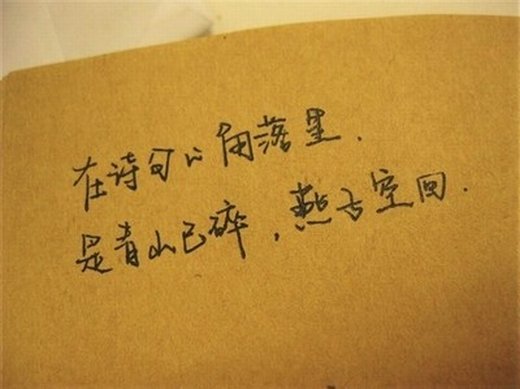 在诗句的角落里.
是青山已碎，燕空回.